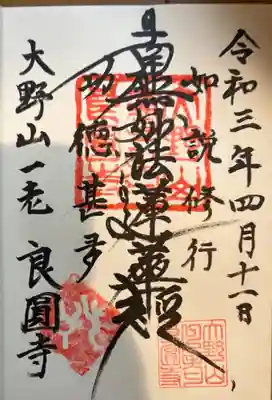 令和三年四月十一日
如説修行
南無妙法蓮華経
功徳甚多
大野山 良圓寺